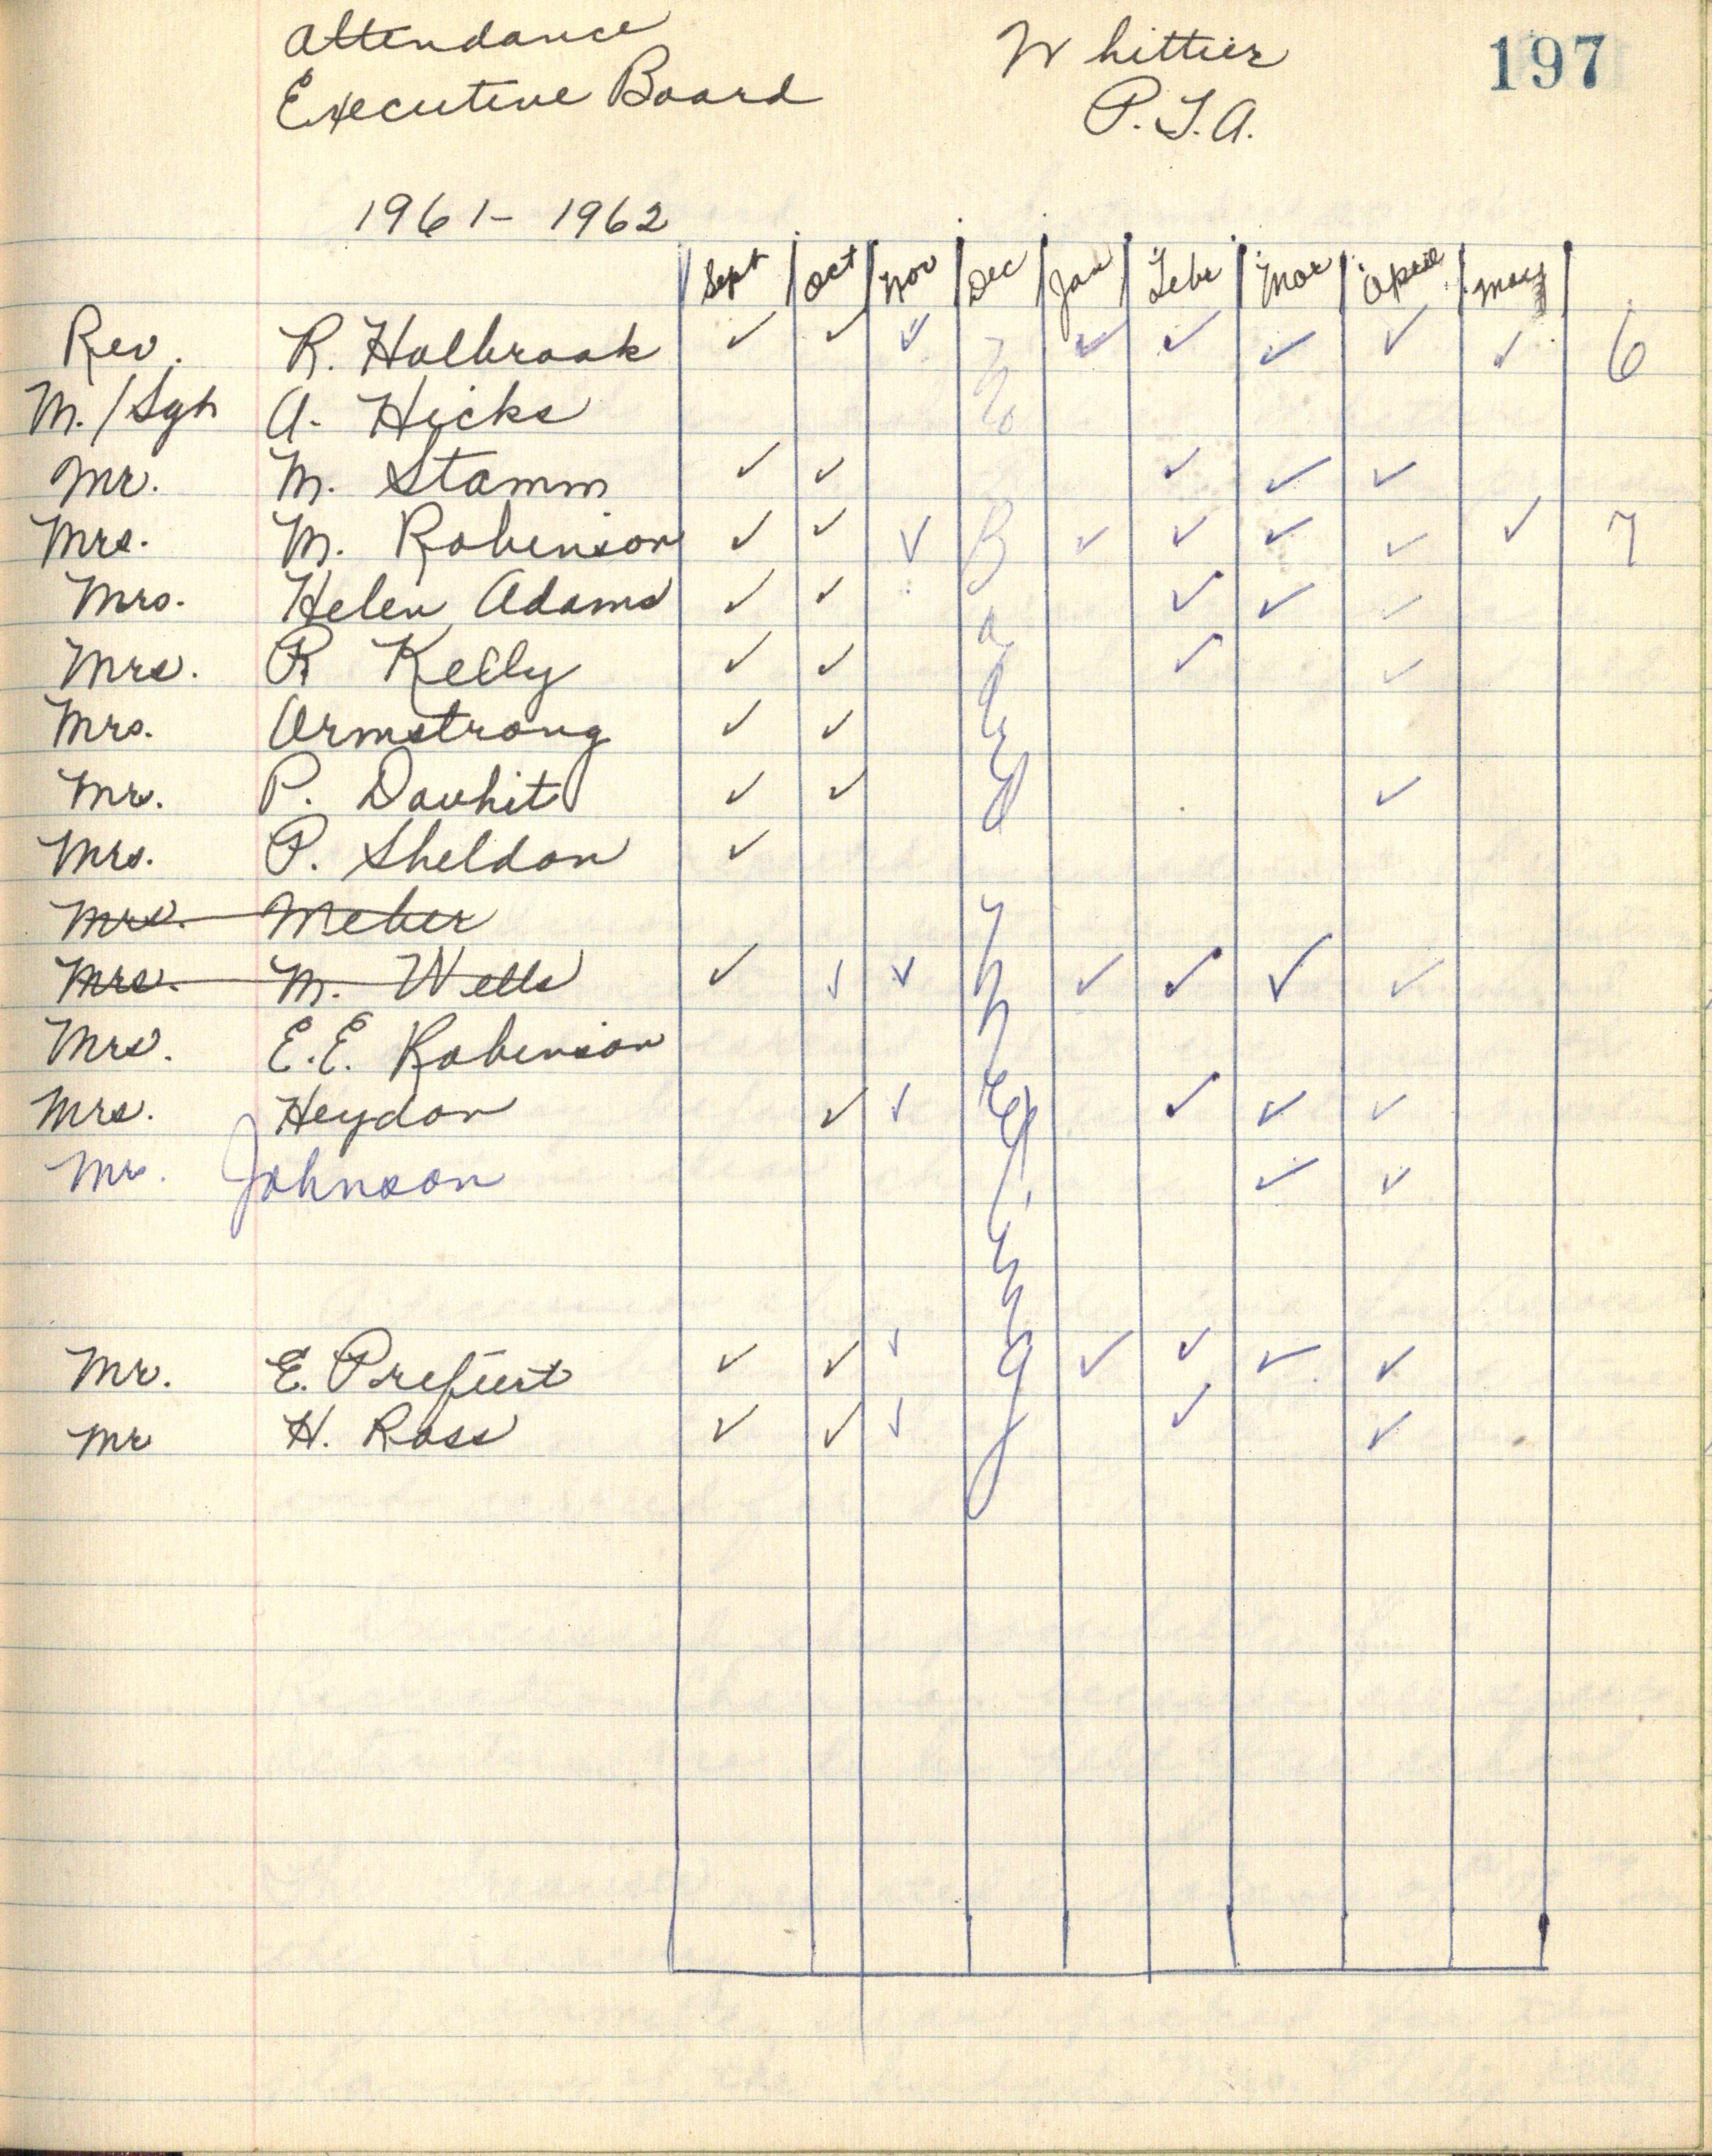 Attendance Whittier 197
Executive Board P.T.A.
1961-1962
Sept Oct Nov Dec Jan Febr Mar April May
Rev. R. Holbrook ✓ ✓ ✓ ✓ ✓ ✓ ✓ ✓ 6
M./Sgt A. Hicks
Mr. M. Stamm ✓ ✓ ✓ ✓ ✓
Mrs. M. Robinson ✓ ✓ ✓ ✓ ✓ ✓ ✓ ✓ 7
Mrs. Helen Adams ✓ ✓ ✓ ✓ ✓
Mrs. R Kelly ✓ ✓ ✓ ✓
Mrs. Armstrong ✓ ✓
Mr. P. Douhit ✓ ✓ ✓
Mrs. P. Sheldon ✓
Mrs. Meber
Mrs. M. Wells ✓ ✓ ✓ ✓ ✓ ✓ ✓
Mrs. E.E. Robinson
Mrs. Heydon ✓ ✓ ✓ ✓ ✓
Mr. Johnson ✓ ✓
Mr. E. Prefiert ✓ ✓ ✓ ✓ ✓ ✓ ✓
Mr H. Ross ✓ ✓ ✓ ✓ ✓
No Board Meeting